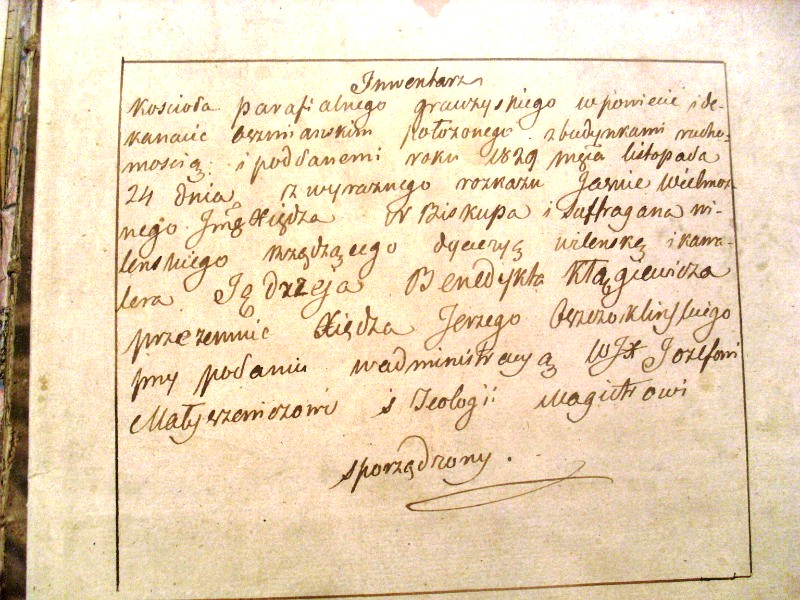 Inwentarz
Kościoła parafialnego grauzyskiego w powiecie i de-
kanacie Oszmianskim położonego z budynkami rucho-
mością i poddanemi roku 1829 mca listopada
24 dnia z wyraznego rozkazu Jasnie Wielmoż
nego Jmę Xiędza Biskupa i Suffragana wi-
lenskiego rządzącego dyecezyą wilenską i kawa-
lera Jędrzeja Benedykta Kłągiewicza
przezemnie Xiędza Jerzego
przy podaniu w administracyą WJX Jozefowi
Małyszewiczowi S Teologii Magistrowi
sporządzony.